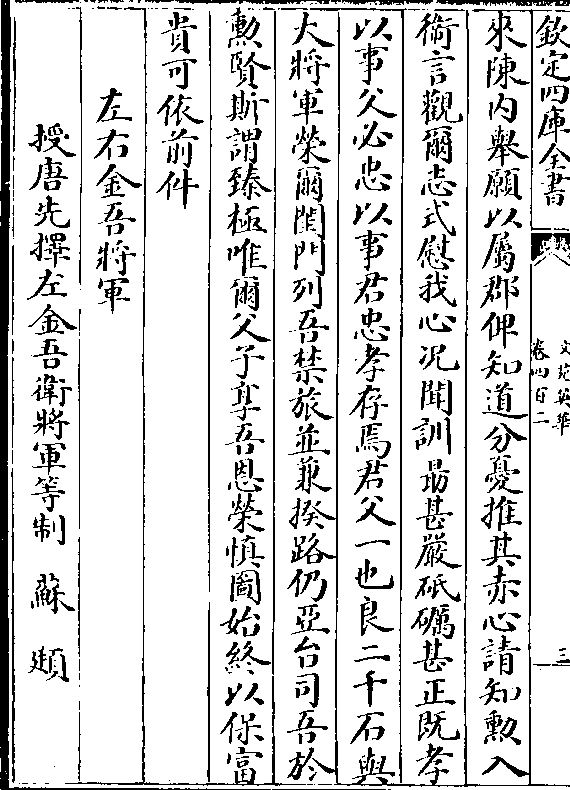 欽定四庫全書
文苑英華
卷四百二
三
來陳内舉願以屬郡俾知道分憂推其赤心請知勲入
衛言觀爾志式慰我心况聞訓勗甚嚴砥礪甚正既孝
以事父必忠以事君忠孝存焉君父一也良二千石與
大將軍榮爾閨門列吾禁旅並兼揆路仍亞台司吾於
勲賢斯謂臻極唯爾父子享吾恩榮慎圖始終以保富
貴可依前件
左右金吾將軍
授唐先擇左金吾衛將軍等制　蘇頲